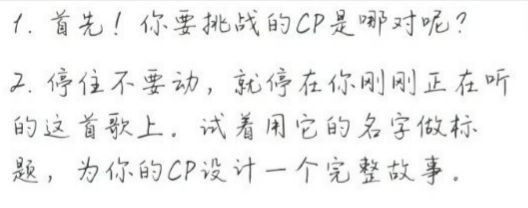 1. 首先！你要挑战的CP是哪对呢？
2. 停住不要动，就停在你刚刚正在听
的这首歌上。试着用它的名字做标
题，为你的CP设计一个完整故事。